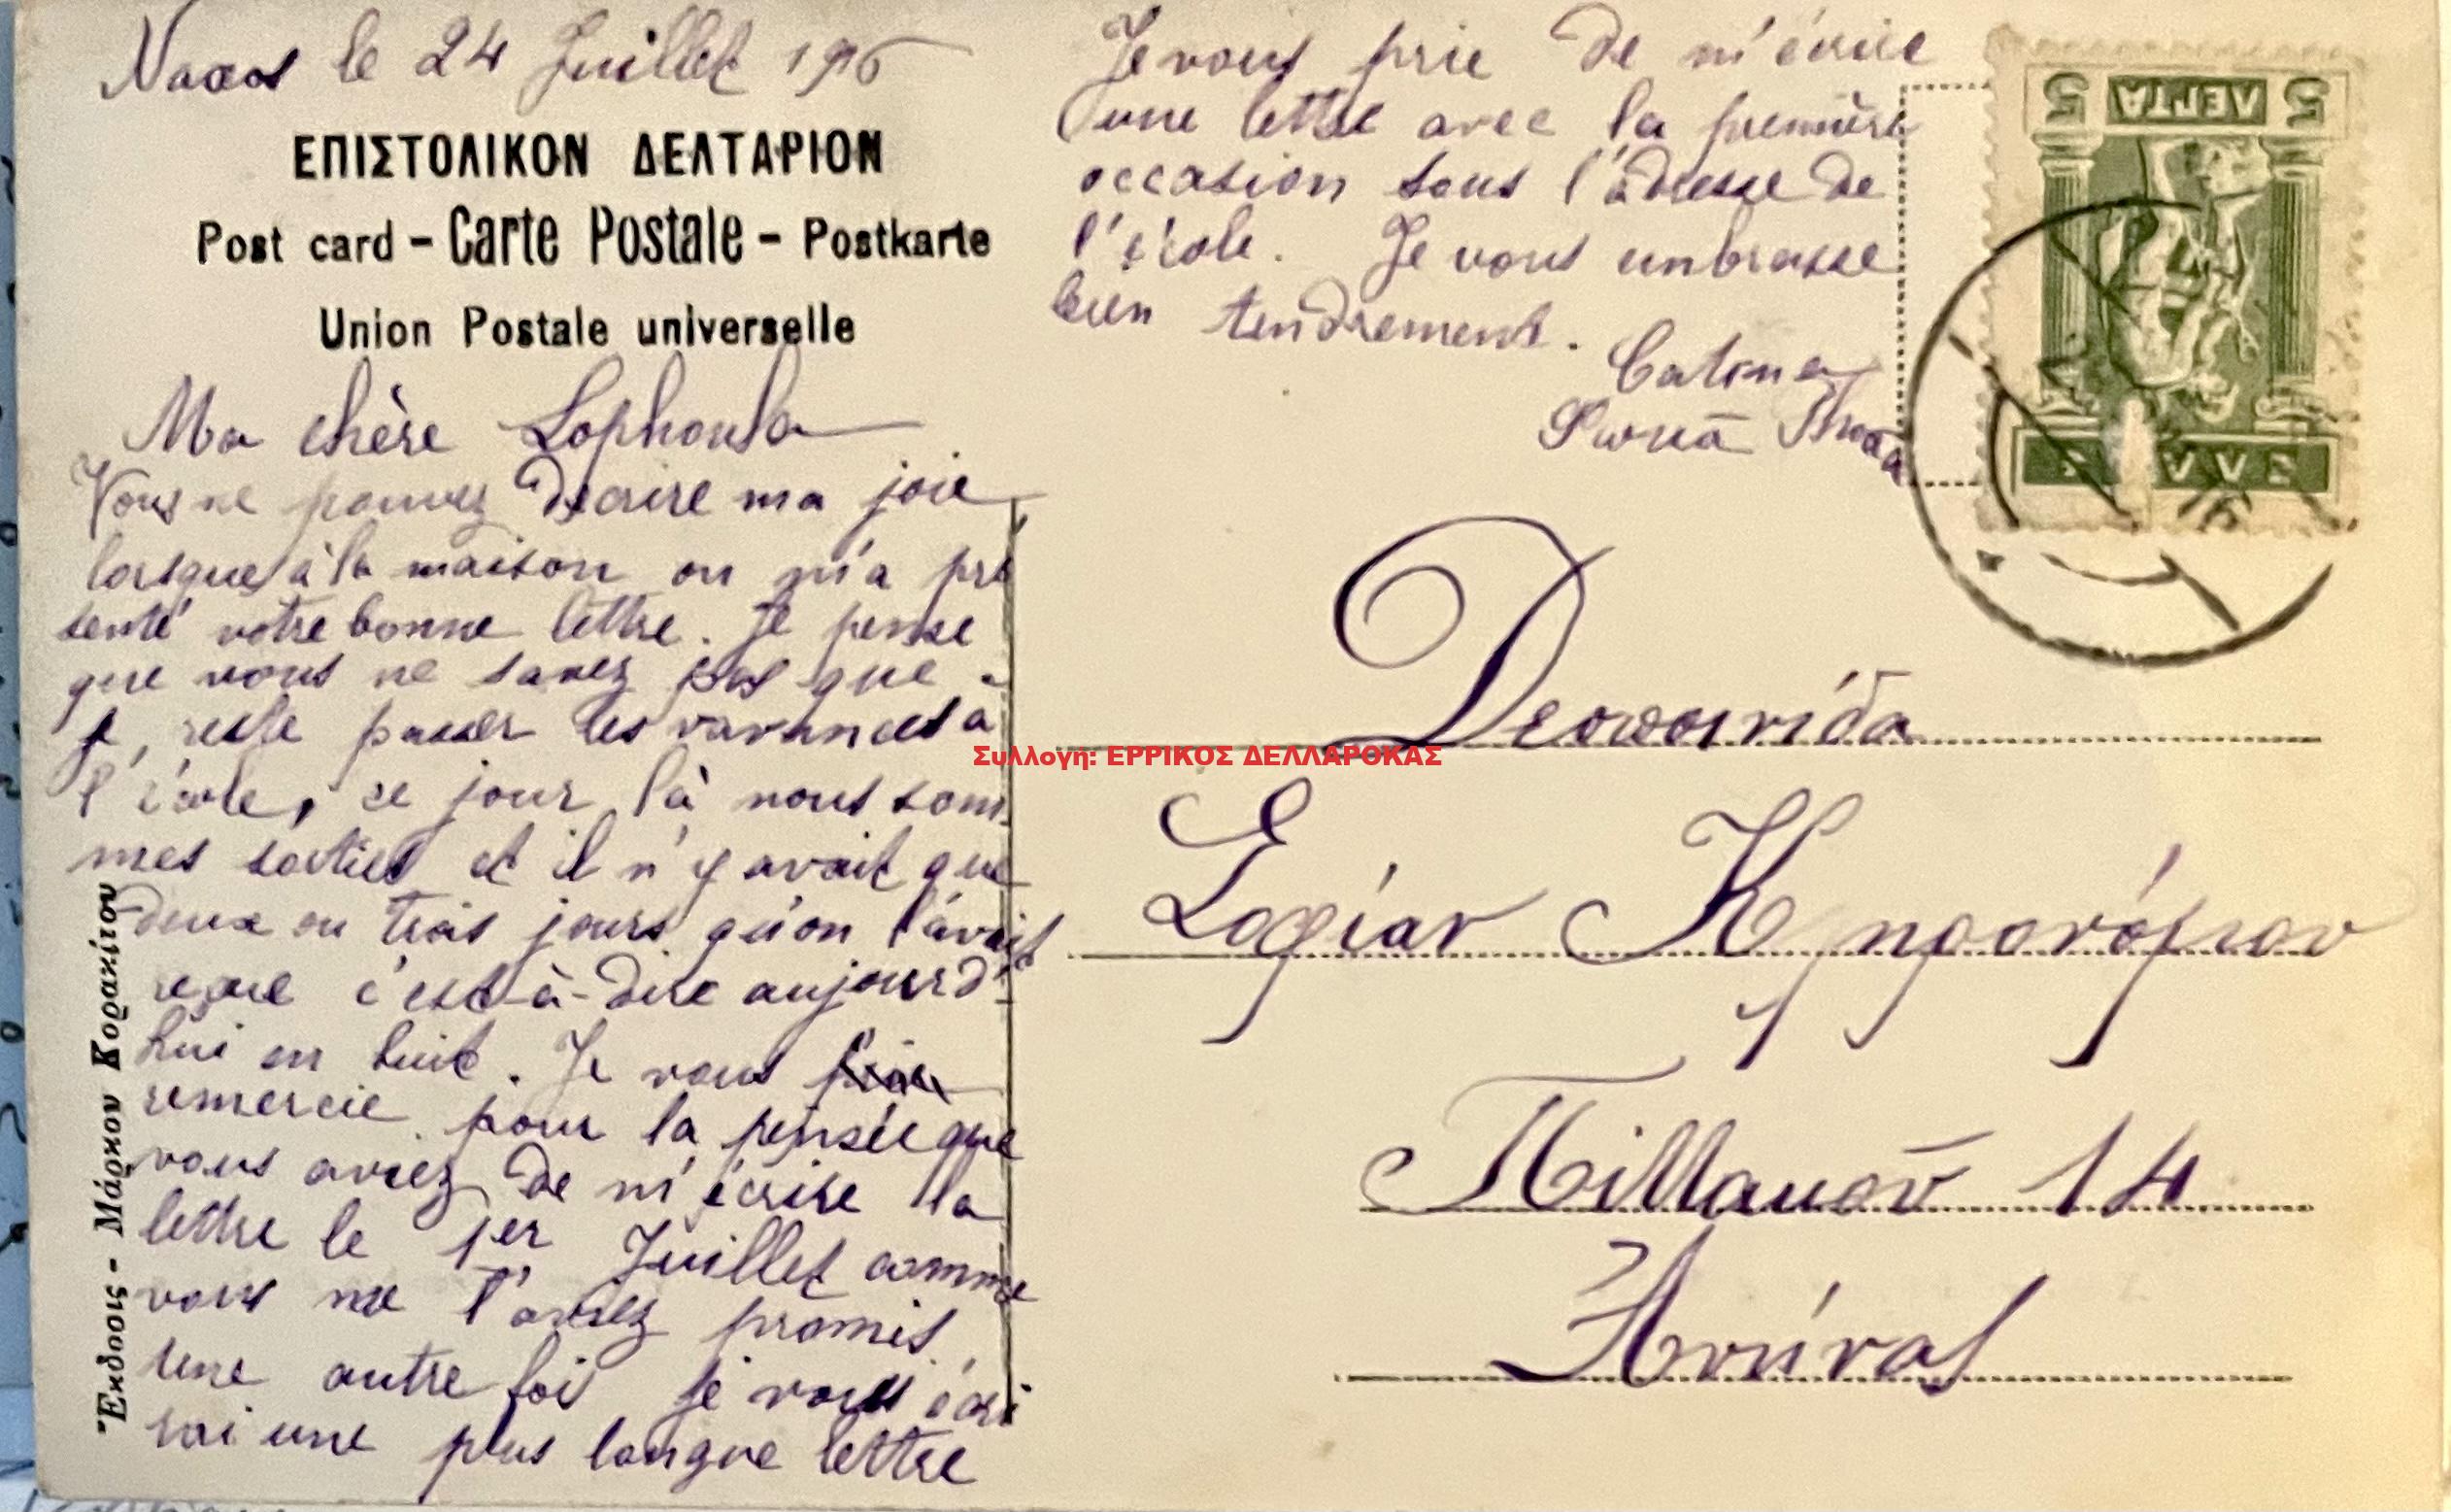 Naxos le 24 Juillet 1916
ΕΠΙΣΤΟΛΙΚΟΝ ΔΕΛΤΑΡΙΟΝ
Post card - Carte Postale - Postkarte
Union Postale universelle
Ma chère Sophoula
Vous ne pouvez décrire ma joie
lorsque à la maison on m'a pré
senté votre bonne lettre. Je pense
que vous ne savez pas que
je, reste passer les vavances à
l'école, ce jour là nous som
mes sorties et il n'y avait que
deux ou trois jours qu'on l'avait
reçue c'est-à-dire aujourd'
hui en huit. Je vous
remercie pour la pensée que
vous aviez de m'écrire la
lettre le 1er Juillet comme
vous me l'aviez promis
une autre foi je vous écri
rai une plus longue lettre
Je vous prie de m'écrire
une lettre avec la première
occasion sous l'adresse de
l'école. Je vous embrasse
bien tendrement.
Catina
5 ΛΕΠΤΑ 5
ΕΛΛΑΣ
Δεσποινίδα
Σοφίαν Κληρονόμου
Πιλλακού 14
Ἀθήνας
Ἔκδοσις - Μάρκου Κορακίτου
Συλλογη: ΕΡΡΙΚΟΣ ΔΕΛΛΑΡΟΚΑΣ